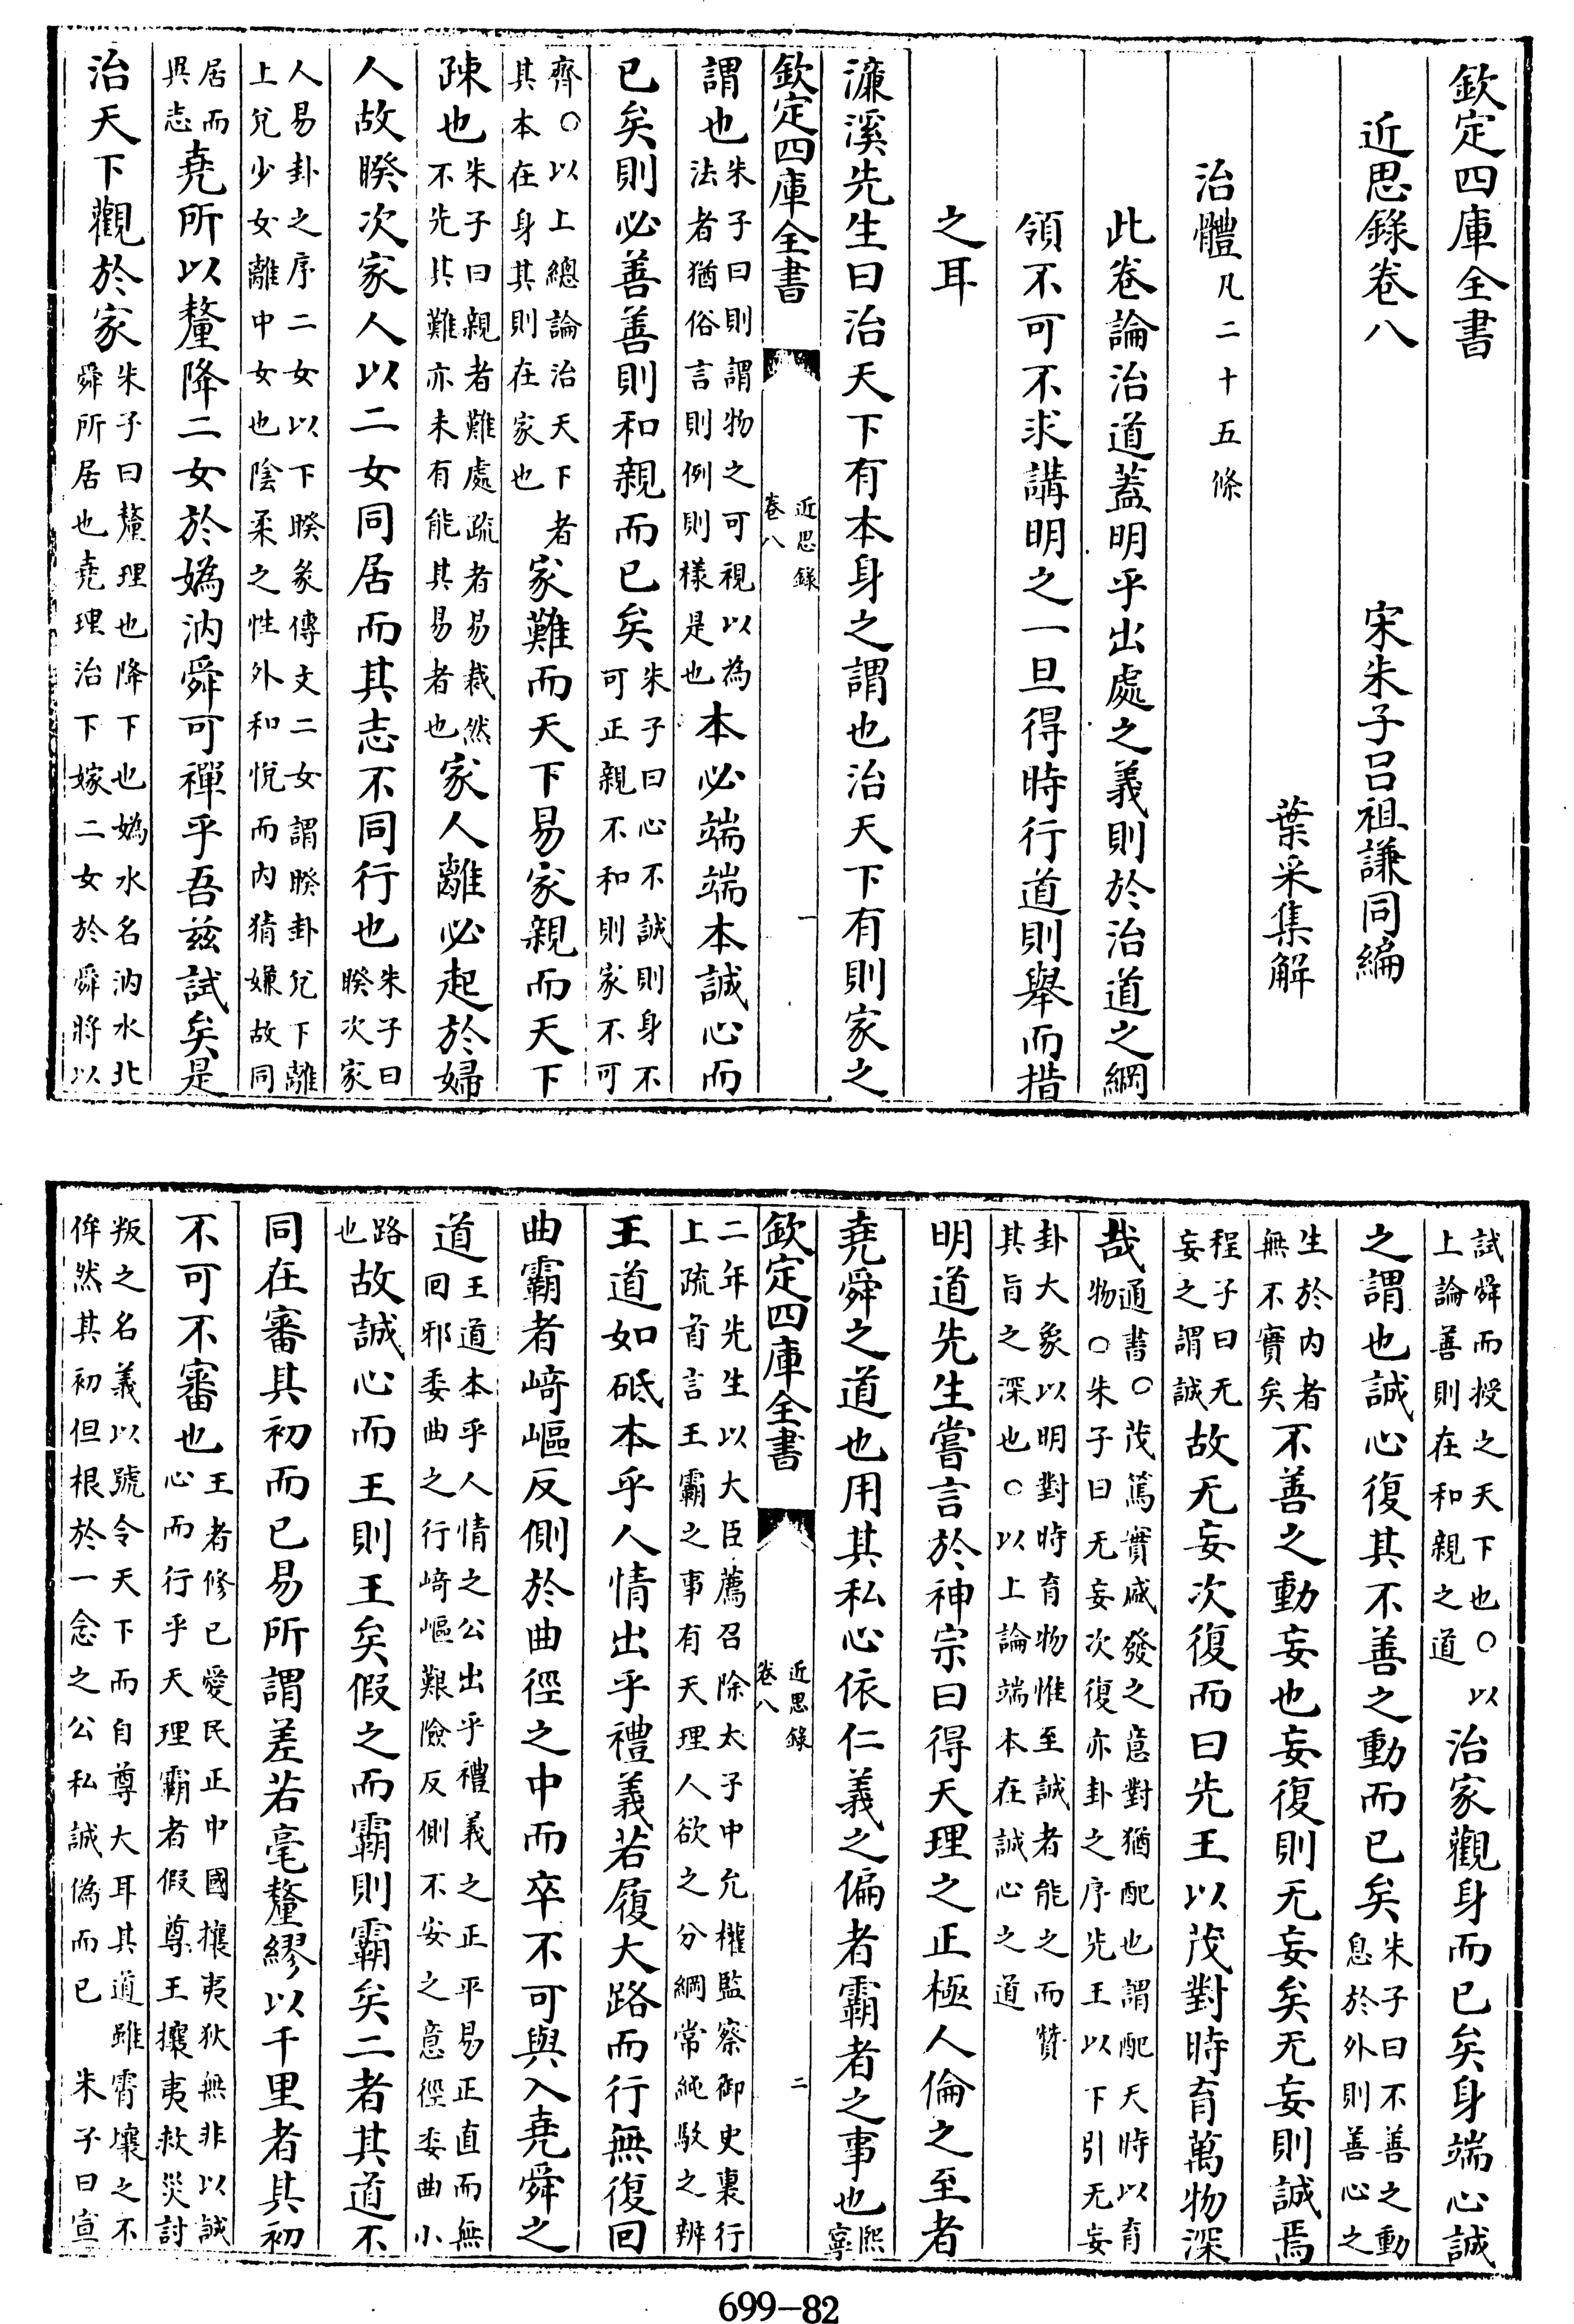 欽定四庫全書
近思錄卷八 宋朱子呂祖謙同編
葉采集解
治體凡二十五條
此卷論治道蓋明乎出處之義則於治道之綱
領不可不求講明之一旦得時行道則舉而措
之耳
濂溪先生曰治天下有本身之謂也治天下有則家之
欽定四庫全書 近思錄 卷八 一
謂也朱子曰則謂物之可視以為法者猶俗言則例則樣是也本必端端本誠心而
已矣則必善善則和親而已矣朱子曰心不誠則身不可正親不和則家不可
齊○以上總論治天下者其本在身其則在家也家難而天下易家親而天下
疎也朱子曰親者難處疏者易裁然不先其難亦未有能其易者也家人離必起於婦
人故睽次家人以二女同居而其志不同行也朱子曰睽次家
人易卦之序二女以下睽彖傳文二女謂睽卦兌下離上兌少女離中女也陰柔之性外和悅而內猜嫌故同
居而異志堯所以釐降二女於媯汭舜可禪乎吾兹試矣是
治天下觀於家朱子曰釐理也降下也媯水名汭水北舜所居也堯理治下嫁二女於舜將以
試舜而授之天下也○以上論善則在和親之道治家觀身而已矣身端心誠
之謂也誠心復其不善之動而已矣朱子曰不善之動息於外則善心之
生於內者無不實矣不善之動妄也妄復則无妄矣无妄則誠焉
程子曰无妄之謂誠故无妄次復而曰先王以茂對時育萬物深
哉通書○茂篤實盛發之意對猶配也謂配天時以育物○朱子曰无妄次復亦卦之序先王以下引无妄
卦大象以明對時育物惟至誠者能之而贊其旨之深也○以上論端本在誠心之道
明道先生嘗言於神宗曰得天理之正極人倫之至者
堯舜之道也用其私心依仁義之偏者霸者之事也熙寧
欽定四庫全書 近思錄 卷八 二
二年先生以大臣薦召除太子中允權監察御史裏行上疏首言王霸之事有天理人欲之分綱常純駁之辨
王道如砥本乎人情出乎禮義若履大路而行無復回
曲霸者崎嶇反側於曲徑之中而卒不可與入堯舜之
道王道本乎人情之公出乎禮義之正平易正直而無回邪委曲之行崎嶇艱險反側不安之意徑委曲小
路也故誠心而王則王矣假之而霸則霸矣二者其道不
同在審其初而已易所謂差若毫釐繆以千里者其初
不可不審也王者修已愛民正中國攘夷狄無非以誠心而行乎天理霸者假尊王攘夷救災討
叛之名義以號令天下而自尊大耳其道雖霄壤之不侔然其初但根於一念之公私誠偽而已 朱子曰宣
699-82